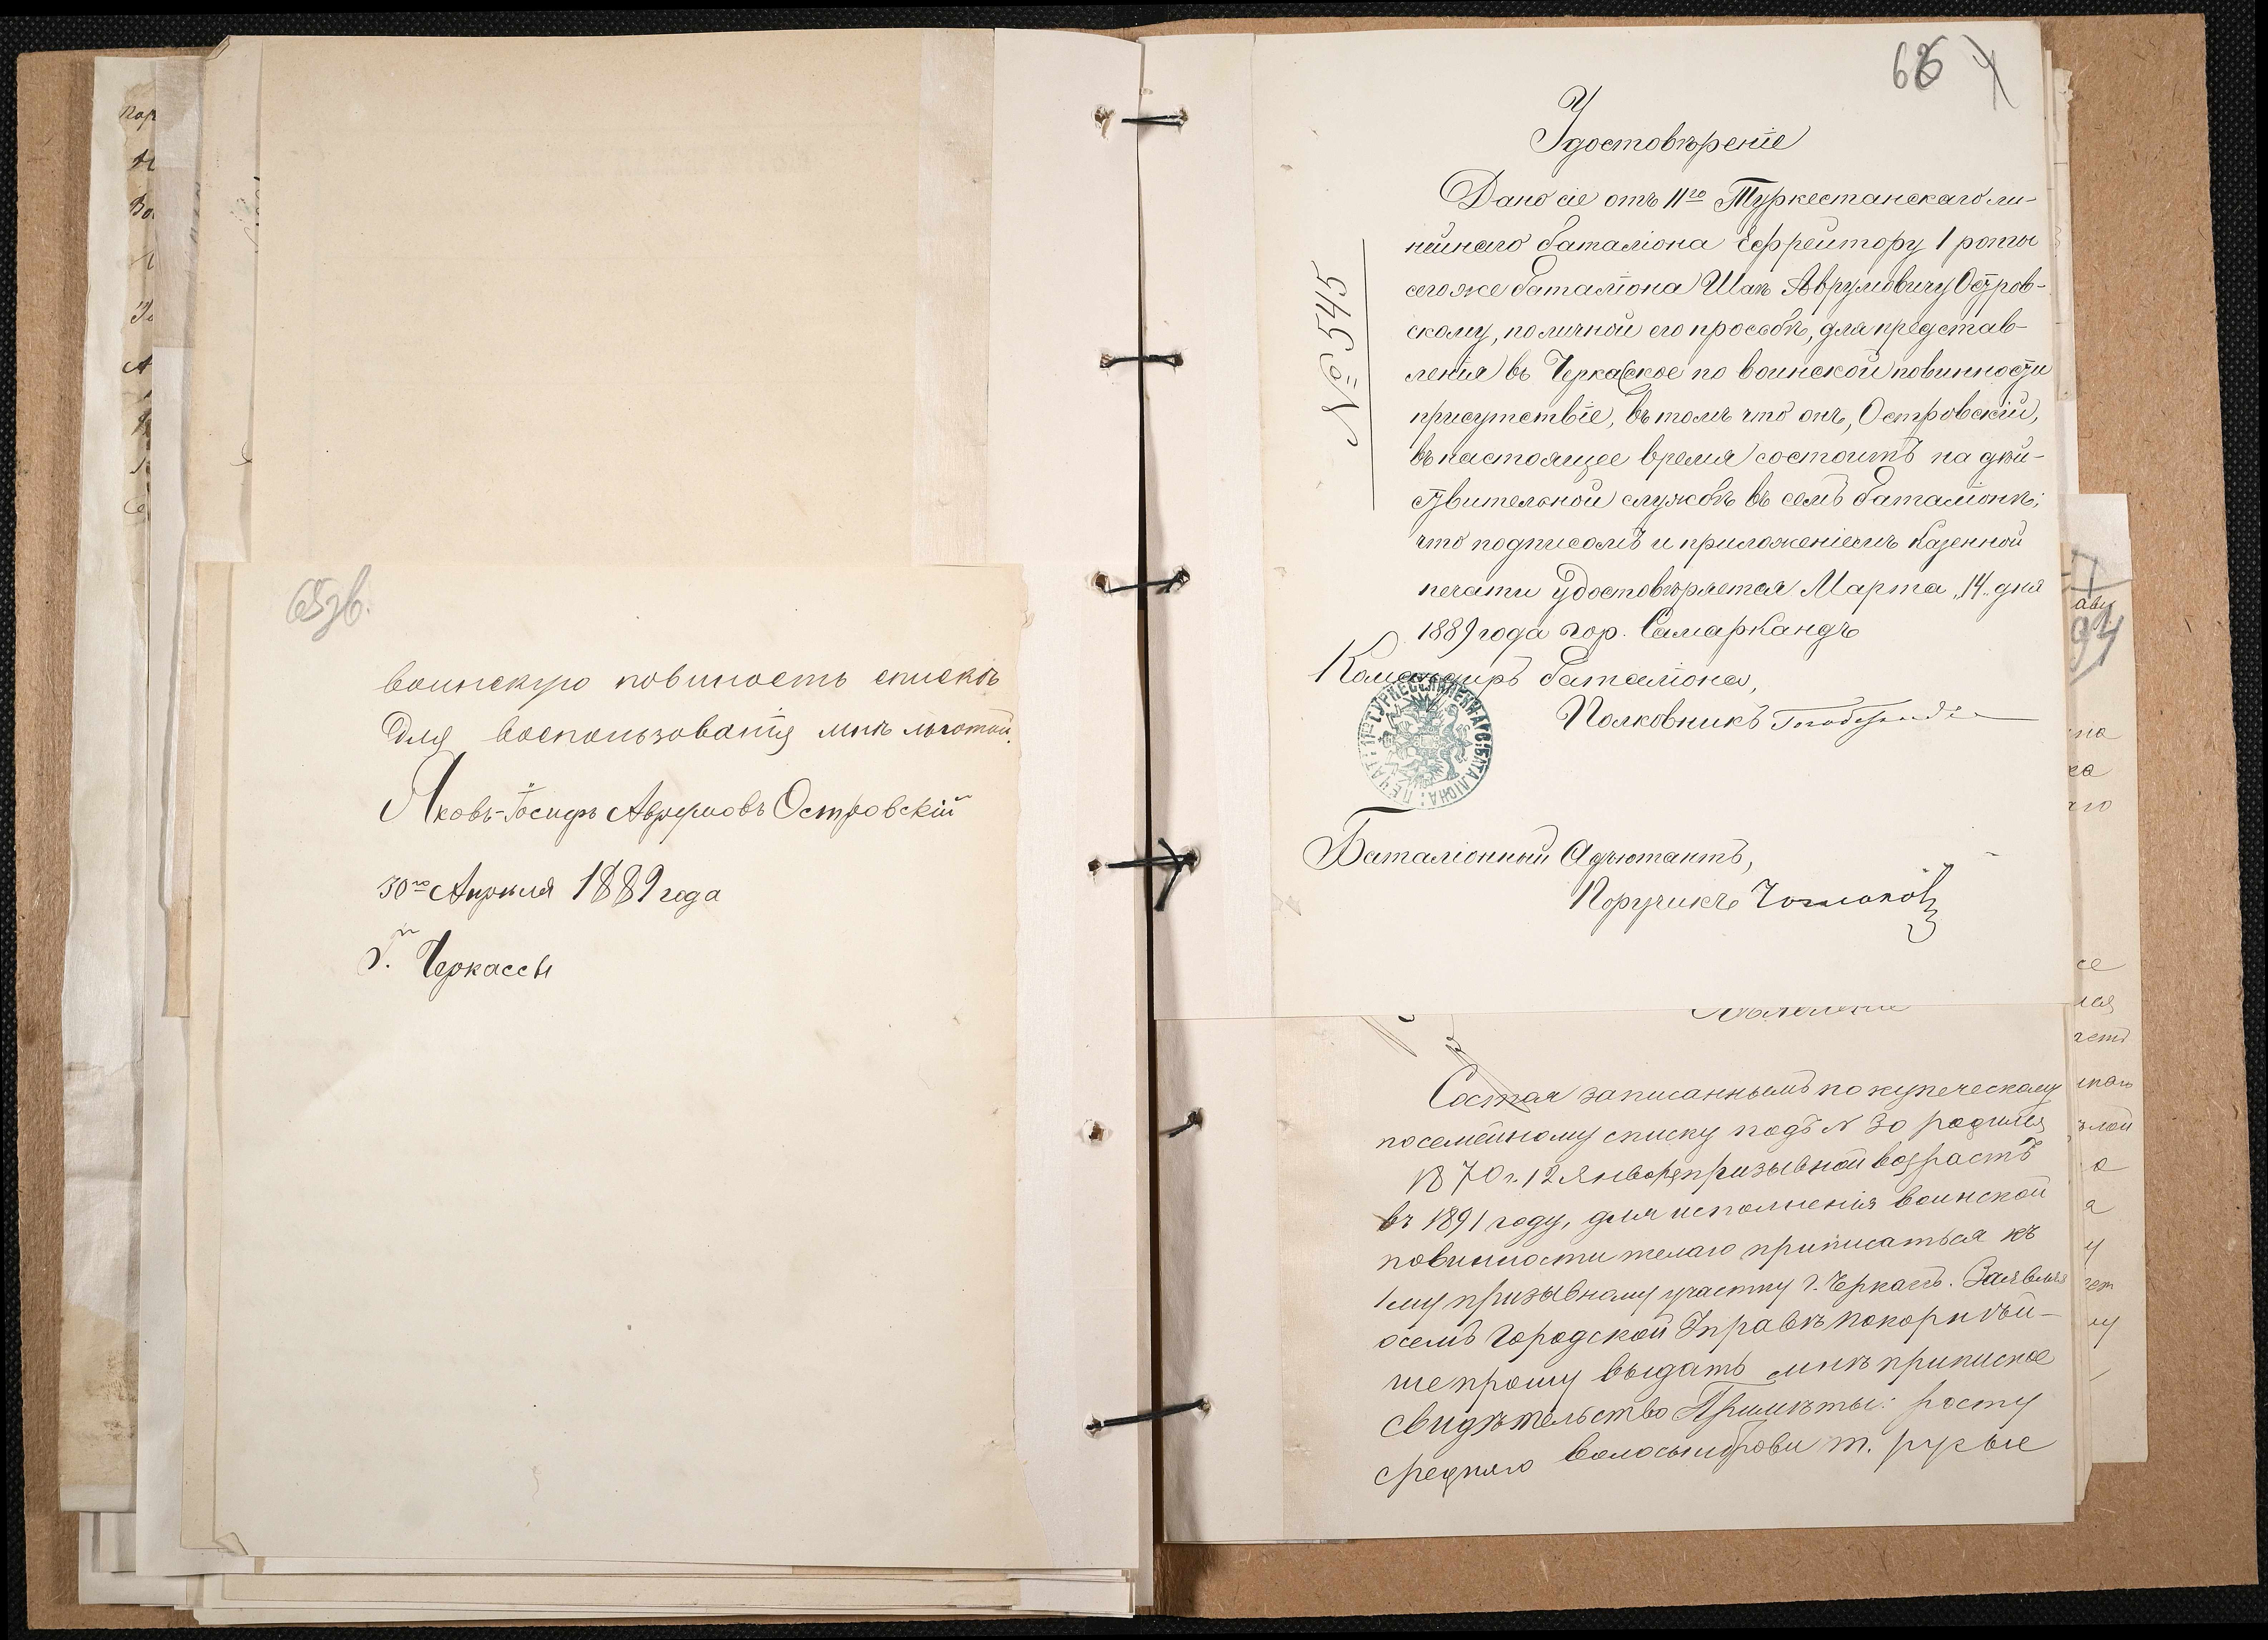 65зв.
воинскую повиность списковъ
Для воспользованія мнѣ льготой.
Яковъ-Іосифъ Аврумовъ Островскій
30го Апрѣля 1889 года
Г. Черкассы
66
Удостовѣреніе
№ 545
Дано сіе отъ 11го Туркестанскаго ли-
нейнаго баталіона Ефрейтору 1 роты
сего же баталіона Шаѣ Аврумовичу Остров-
скому, по личной его просьбѣ, для представ-
ленія въ Черкасское по воинской повинности
присутствіе, въ томъ что онъ, Островскій,
въ настоящее время состоитъ на дѣй-
ствительной службѣ въ семъ баталіонѣ;
что подписомъ и приложеніемъ казенной
печати удостовѣряется Марта „14„ дня
1889 года гор. Самаркандъ
Командиръ баталіона,
Полковникъ
Баталіонный Адъютантъ,
Поручикъ
Состоя записаннымъ по купеческому
посемейному списку подъ N 30 родился
1870 г. 12 Января призывной возрастъ
въ 1891 году, для исполненія воинской
повинности желаю приписаться къ
1му призывному участку г. Черкассъ. Заявляя
о семъ Городской Управѣ покорнѣй-
ше прошу выдать мнѣ приписное
свидѣтельство Примѣты: росту
средняго волосы и брови т. русые